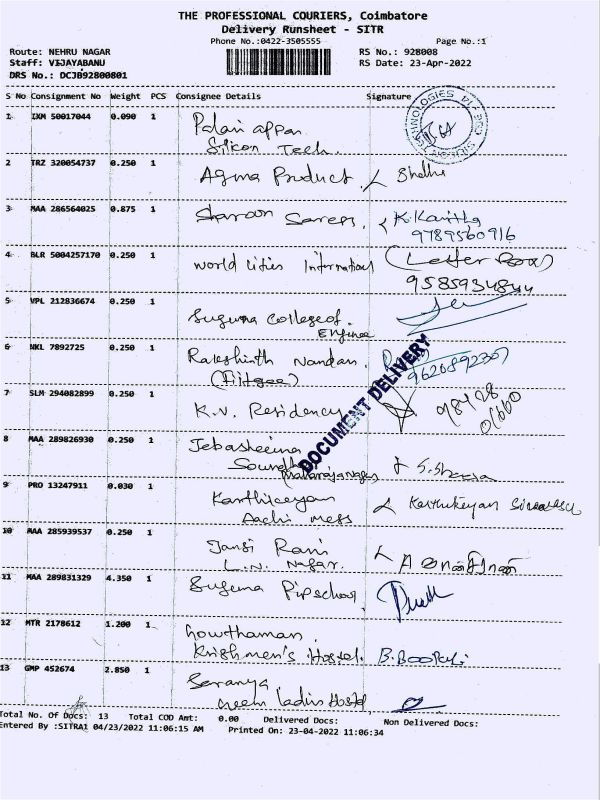 THE PROFESSIONAL COURIERS, Coimbatore
Delivery Runsheet - SITR
Phone No.:0422-3505555 Page No.:1
Route: NEHRU NAGAR RS No.: 928008
Staff: VIJAYABANU RS Date: 23-Apr-2022
DRS No.: DCJB92800801
S No Consignment No Weight PCS Consignee Details Signature
1 IXM 50017044 0.090 1 Palani appan
Silicon Tech.
2 TRZ 320054737 0.250 1 Agma Product
3 MAA 286564025 0.875 1 Sharoon Sarees, K. Kavitha
9789560916
4 BLR 5004257170 0.250 1 World Cities International (Letter Box)
9585934844
5 VPL 212836674 0.250 1 Suguna College of
Engince
6 NKL 7892725 0.250 1 Rakshinth Nandan.
(Fiitgee) 9620892307
7 SLM 294082899 0.250 1 K.V. Residency 98428
01660
8 MAA 289826930 0.250 1 Jebasheema
Maharaja Nagar
9 PRO 13247911 0.030 1 Karthikeyan Karthikeyan
Aachi mess
10 MAA 285939537 0.250 1 Jansi Rani
L.N. Nagar.
11 MAA 289831329 4.350 1 Suguna Pip school
12 MTR 2178612 1.200 1 Gowthaman.
Krishmen's Hostel.
13 GMP 452674 2.850 1 Saranya
neem ladies Hostel
DOCUMENT DELIVERY
Total No. Of Docs: 13 Total COD Amt: 0.00 Delivered Docs: Non Delivered Docs:
Entered By :SITRA1 04/23/2022 11:06:15 AM Printed On: 23-04-2022 11:06:34